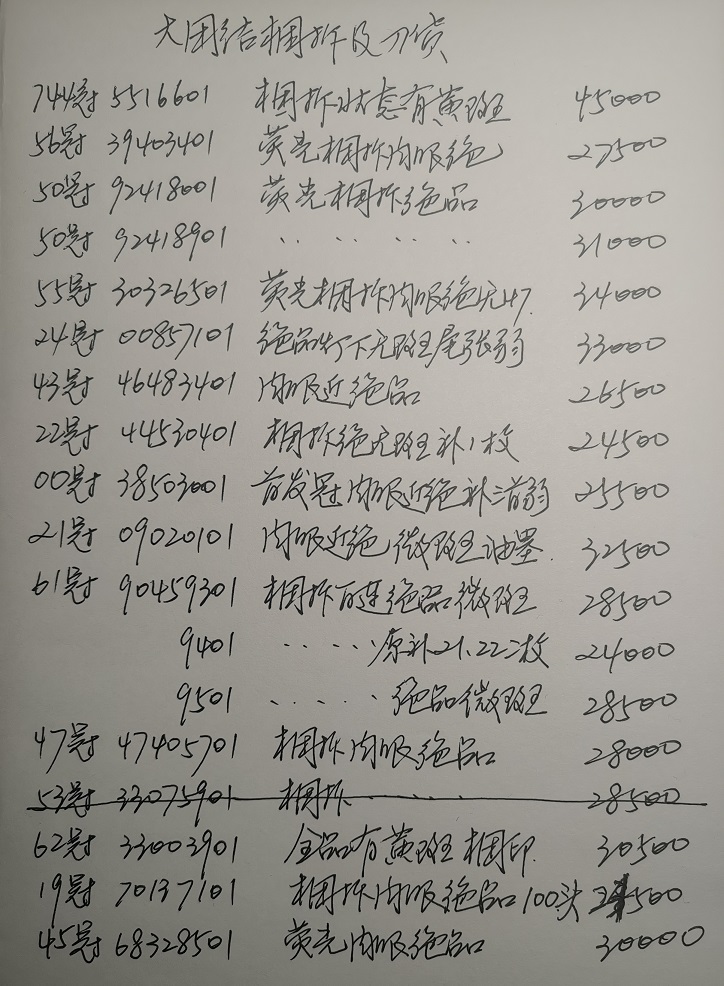 大团结捆拆及刀货
744冠 5516601 捆拆状态有黄斑 45000
56冠 39403401 荧光捆拆肉眼绝 27500
50冠 92418001 荧光捆拆绝品 30000
50冠 92418901 ...... 31000
55冠 30326501 荧光捆拆肉眼绝无47. 34000
24冠 00857101 绝品灯下无斑尾张弱 33000
43冠 46483401 肉眼近绝品 26500
22冠 44530401 捆拆绝无斑补1枚 24500
00冠 38503001 首发冠肉眼近绝补三首弱 25500
21冠 09020101 肉眼近绝微斑油墨. 32500
61冠 90459301 捆拆百连绝品微斑 28500
9401 .....原补21.22二枚 24000
9501 ......绝品微斑 28500
47冠 47405701 捆拆肉眼绝品 28000
53冠 33075901 捆拆.... 28500
62冠 33003901 全品有黄斑捆印. 30500
19冠 70137101 捆拆肉眼绝品100头 500
45冠 68328501 荧光肉眼绝品 30000